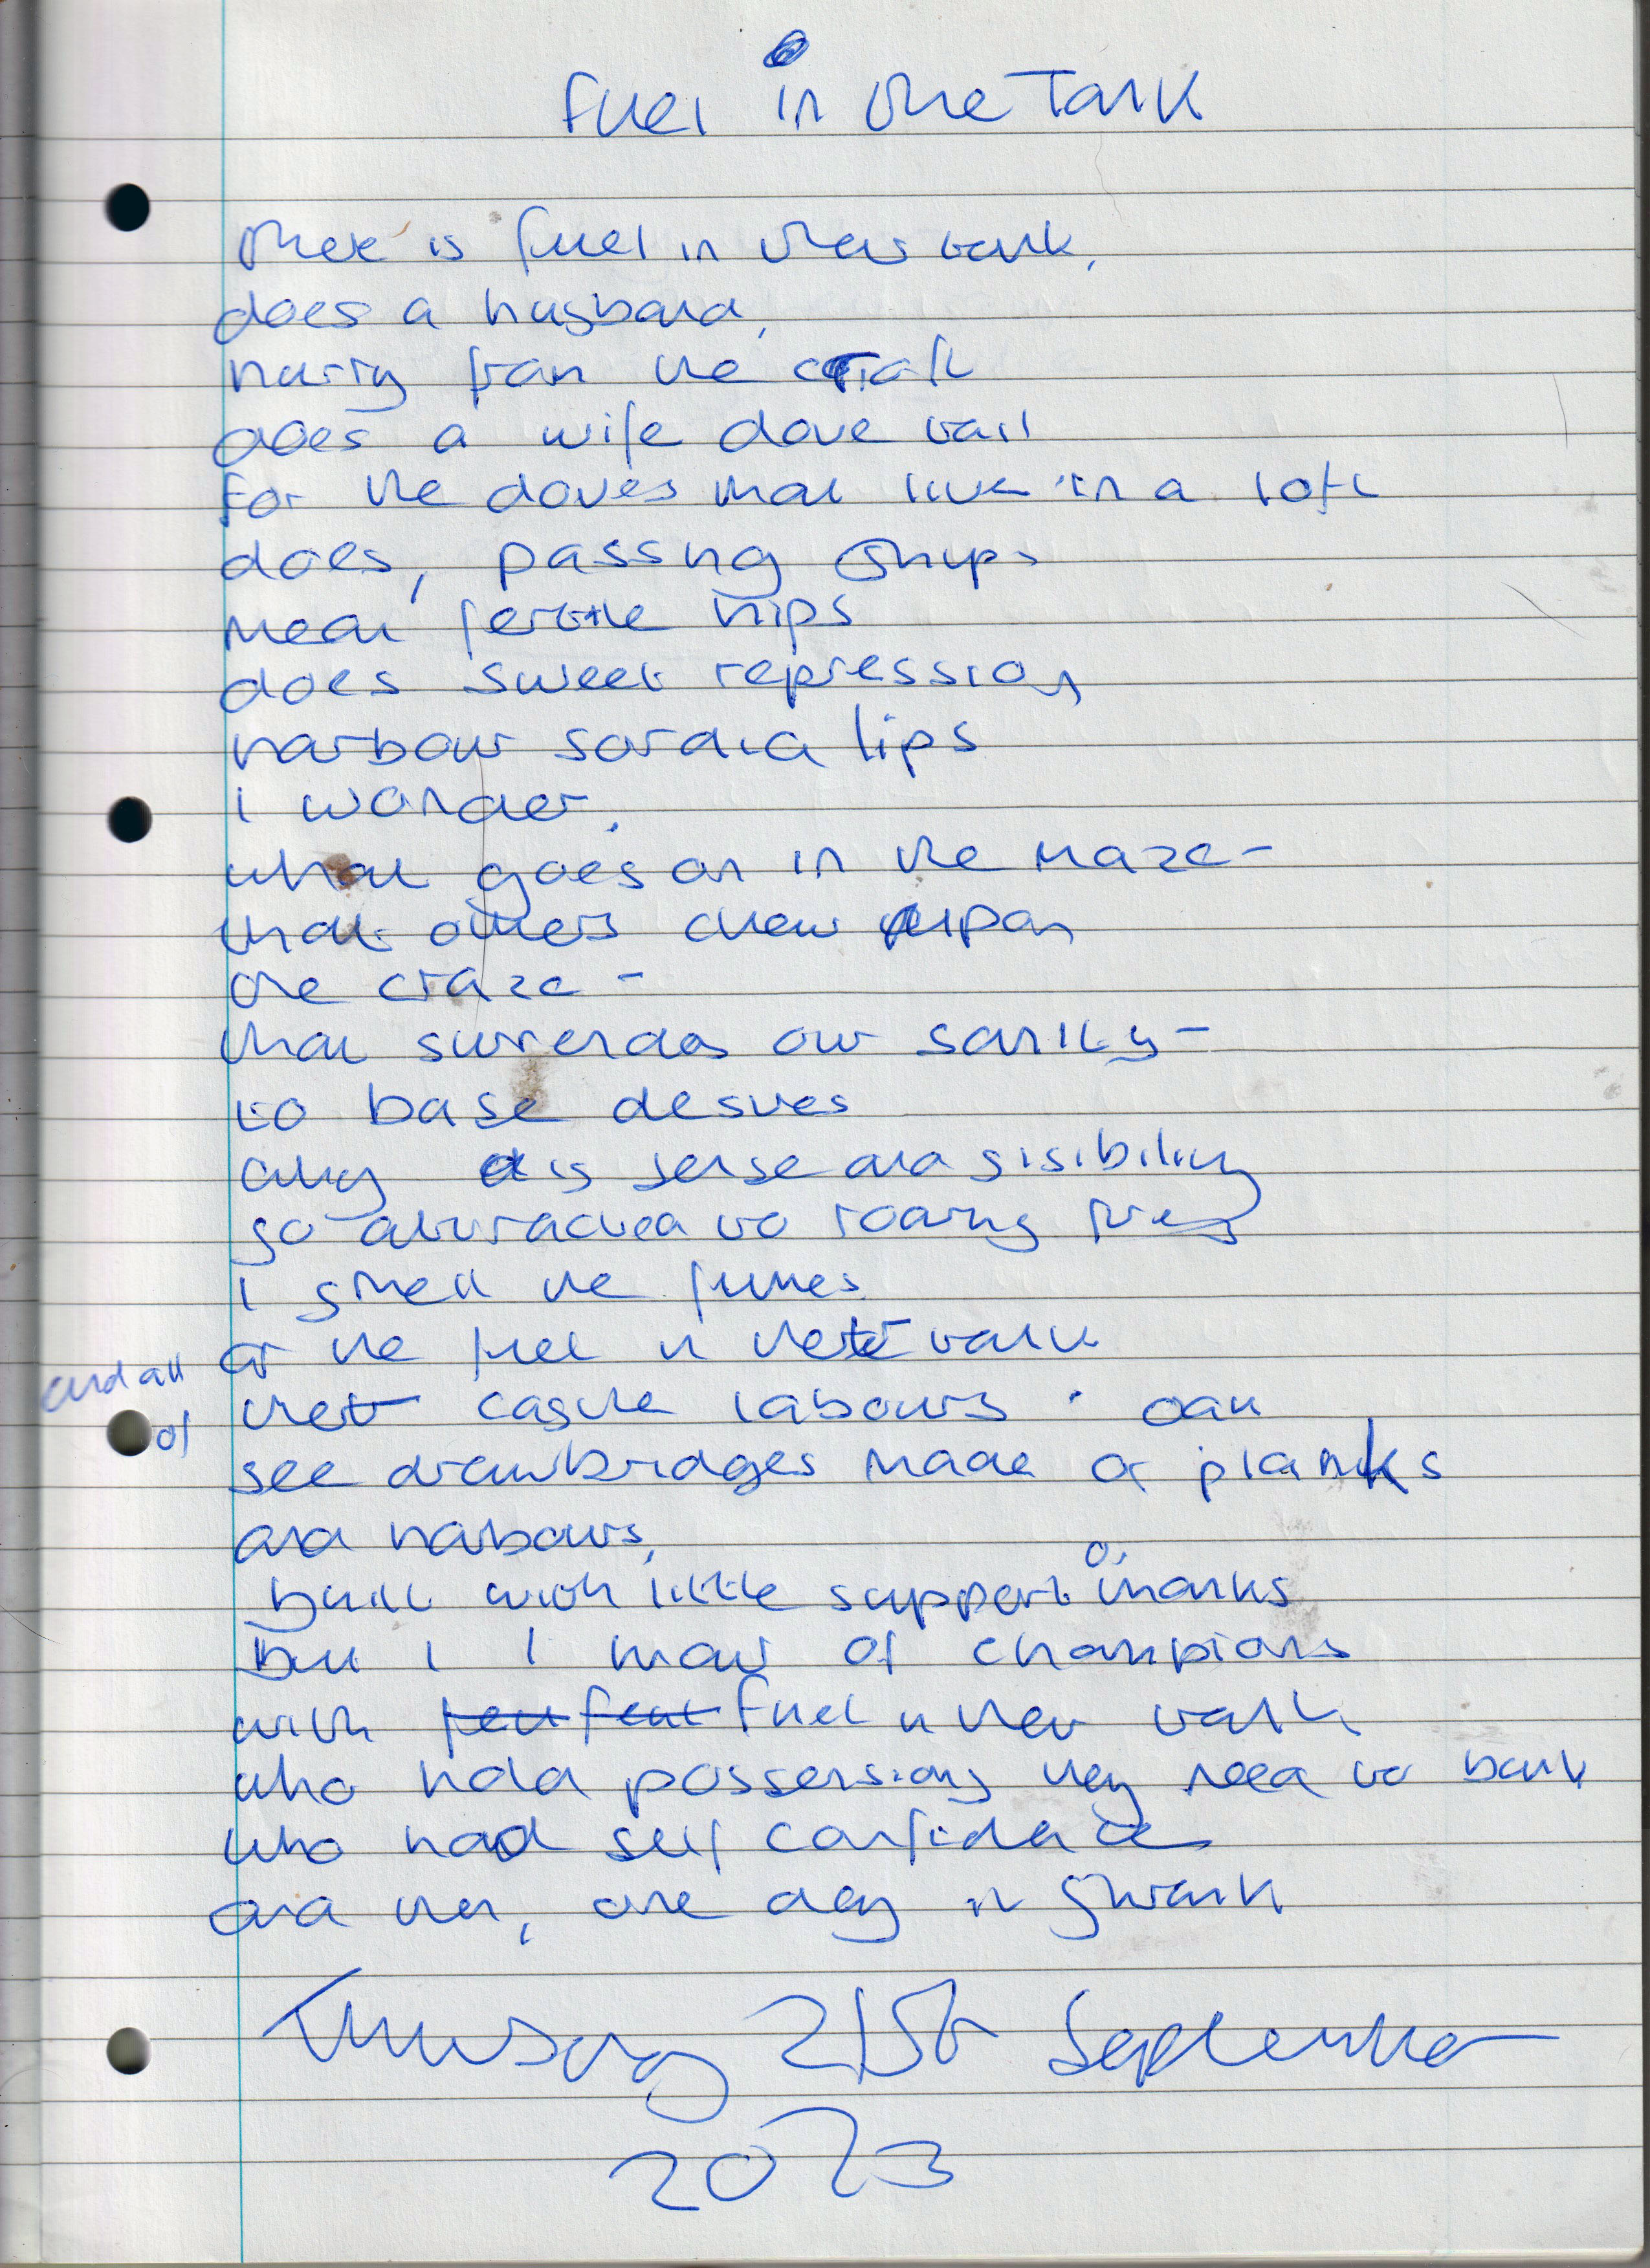 Fuel in the Tank
there is fuel in their tank,
does a husband,
hurry from the craft
does a wife dove tail
for the doves that live in a loft
does, passing ships
mean fertile hips
does sweet repression
harbour sordid lips
I wonder,
what goes on in the maze -
that others chew upon
the craze -
that surrenders our sanity -
to base desires
why is sense and
so attracted to roaring fires
I smell the fumes
or the fuel in their tank
and all
of
their castle labours
see drawbridges made of planks
and harbours,
built with little support or thanks
but I know of champions
with fuel in their tank
who hold possessions they need to bank
who had self confidence
and then, one day it shrank
Thursday 21st September
2023